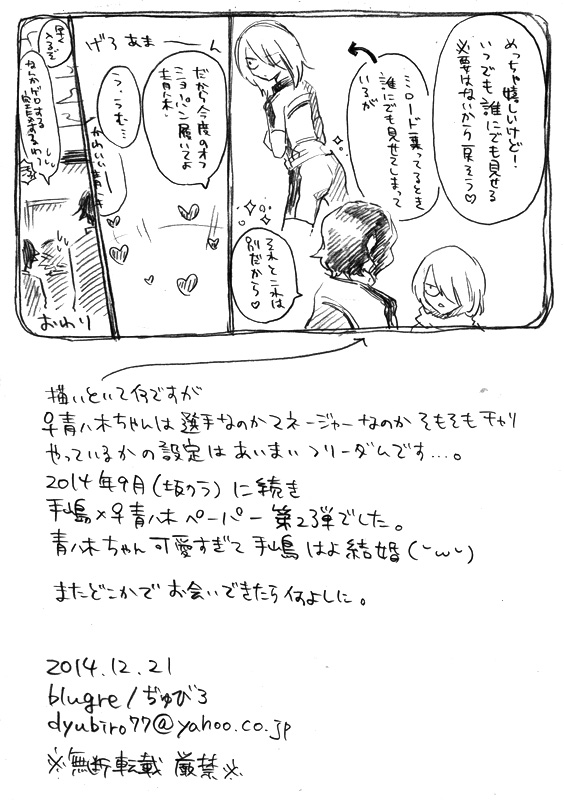 めっちゃ嬉しいけど!
いつでも誰にでも見せる
必要はないから戻そう♡
ミロード乗ってるとき
誰にでも見せてしまって
いるが
それとこれは
別だから♡
げろあまーーん
だから今度のオフ
ショーパン履いてよ
青八木
う…うむ…
かわいい青八木
早く
入るぞ
なんかゲロする
おわり
描いといて何ですが
♀青八木ちゃんは選手なのかマネージャーなのか そもそもチャリ
やっているかの設定はあいまいフリーダムです…。
2014年9月(坂のラ)に続き
手嶋×♀青八木ペーパー第2弾でした。
青八木ちゃん可愛すぎて手嶋はよ結婚(˘ω˘)
またどこかでお会いできたら何よしに。
2014.12.21
blugre/ぢゅびろ
dyubiro77@yahoo.co.jp
※無断転載 厳禁※